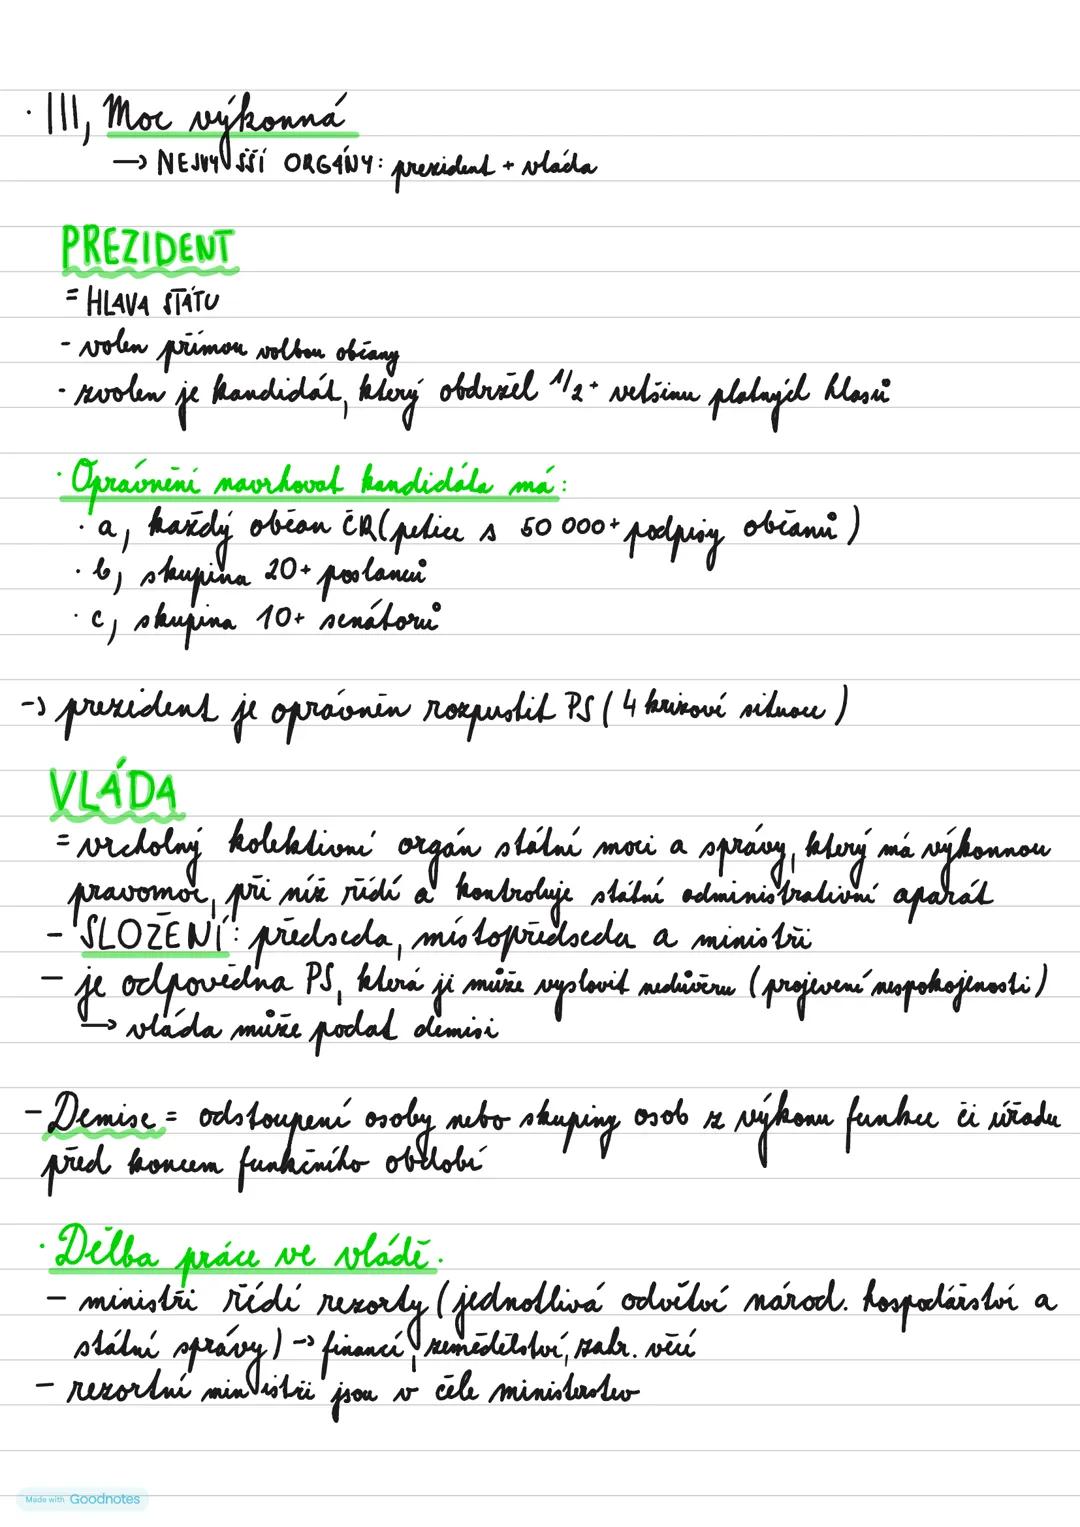 · III, Moc výkonná
→ NEJVYŠŠÍ ORGÁNY: prezident + vláda
PREZIDENT
= HLAVA STÁTU
- volen přímou volbou občany
- zvolen je kandidát, který obdržel 1/2+ vetšinu platných hlasů
· Oprávnění navrhovat kandidáta má:
· a, každý občan ČR (petice s 50 000+ podpisy občanů)
· b, skupina 20+ poslanců
· c, skupina 10+ senátorů
-> prezident je oprávněn rozpustit PS (4 krizové situace)
VLÁDA
= vrcholný kolektivní orgán státní moci a správy, který má výkonnou
pravomoc, při níž řídí a kontroluje státní administrativní aparát
- SLOŽENÍ: předseda, místopředseda a ministři
- je odpovědna PS, která jí může vyslovit nedůvěru (projevení nespokojenosti)
→ vláda může podat demisi
- Demise = odstoupení osoby nebo skupiny osob z výkonu funkce či úřadu
před koncem funkčního období
· Dělba práce ve vládě.
- ministři řídí rezorty (jednotlivá odvětví národ. hospodářství a
státní správy) -> financí, zemědělství, zahr. věcí
- rezortní ministři jsou v čele ministerstev
Made with Goodnotes